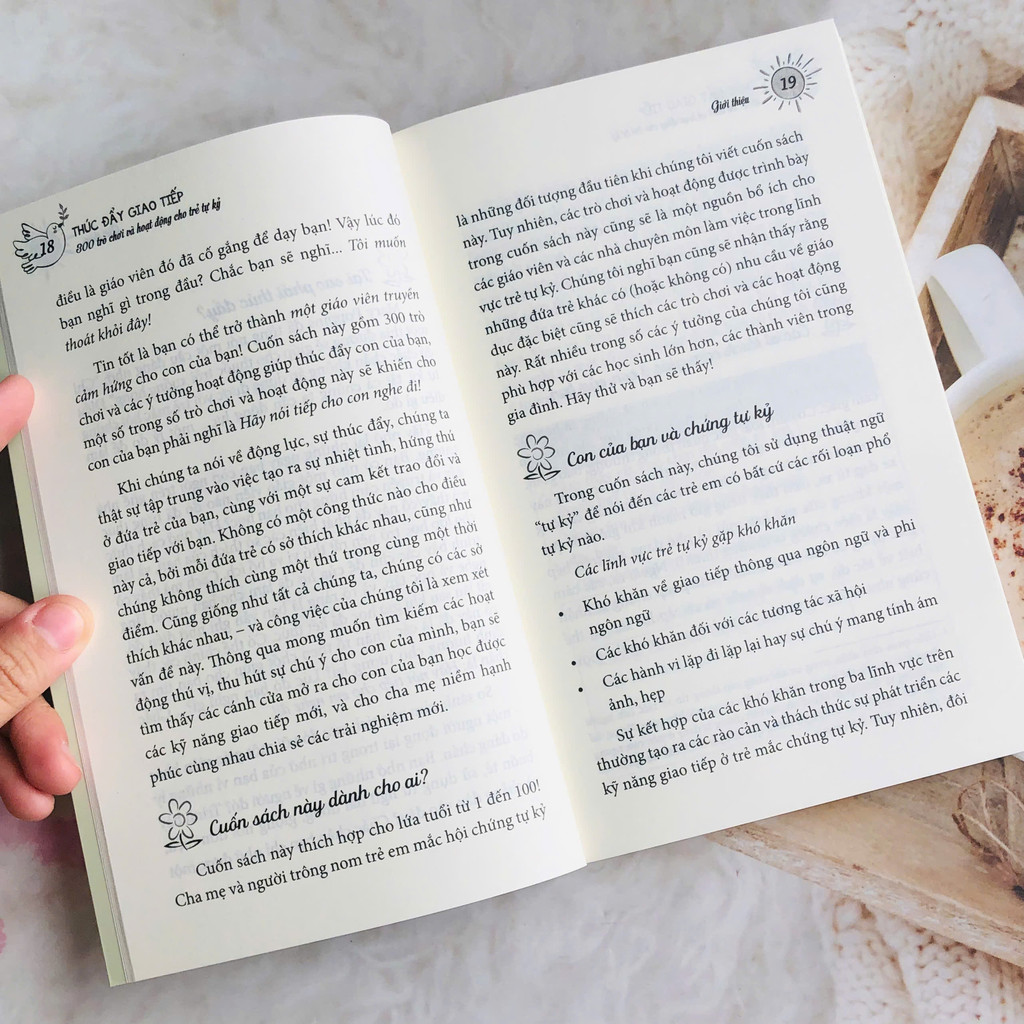 18
THÚC ĐẨY GIAO TIẾP
300 trò chơi và hoạt động cho trẻ tự kỷ
điều là giáo viên đó đã cố gắng để dạy bạn! Vậy lúc đó
bạn nghĩ gì trong đầu? Chắc bạn sẽ nghĩ... Tôi muốn
thoát khỏi đây!
Tin tốt là bạn có thể trở thành một giáo viên truyền
cảm hứng cho con của bạn! Cuốn sách này gồm 300 trò
chơi và các ý tưởng hoạt động giúp thúc đẩy con của bạn,
một số trong số trò chơi và hoạt động này sẽ khiến cho
con của bạn phải nghĩ là Hãy nói tiếp cho con nghe đi!
Khi chúng ta nói về động lực, sự thúc đẩy, chúng ta
thật sự tập trung vào việc tạo ra sự nhiệt tình, hứng thú
ở đứa trẻ của bạn, cùng với một sự cam kết trao đổi và
giao tiếp với bạn. Không có một công thức nào cho điều
này cả, bởi mỗi đứa trẻ có sở thích khác nhau, cũng như
chúng không thích cùng một thứ trong cùng một thời
điểm. Cũng giống như tất cả chúng ta, chúng có các sở
thích khác nhau, – và công việc của chúng tôi là xem xét
vấn đề này. Thông qua mong muốn tìm kiếm các hoạt
động thú vị, thu hút sự chú ý cho con của mình, bạn sẽ
tìm thấy các cánh cửa mở ra cho con của bạn học được
các kỹ năng giao tiếp mới, và cho cha mẹ niềm hạnh
phúc cùng nhau chia sẻ các trải nghiệm mới.
Cuốn sách này dành cho ai?
Cuốn sách này thích hợp cho lứa tuổi từ 1 đến 100!
Cha mẹ và người trông nom trẻ em mắc hội chứng tự kỷ
Giới thiệu
19
là những đối tượng đầu tiên khi chúng tôi viết cuốn sách
này. Tuy nhiên, các trò chơi và hoạt động được trình bày
trong cuốn sách này cũng sẽ là một nguồn bổ ích cho
các giáo viên và các nhà chuyên môn làm việc trong lĩnh
vực trẻ tự kỷ. Chúng tôi nghĩ bạn cũng sẽ nhận thấy rằng
những đứa trẻ khác có (hoặc không có) nhu cầu về giáo
dục đặc biệt cũng sẽ thích các trò chơi và các hoạt động
này. Rất nhiều trong số các ý tưởng của chúng tôi cũng
phù hợp với các học sinh lớn hơn, các thành viên trong
gia đình. Hãy thử và bạn sẽ thấy!
Con của bạn và chứng tự kỷ
Trong cuốn sách này, chúng tôi sử dụng thuật ngữ
“tự kỷ” để nói đến các trẻ em có bất cứ các rối loạn phổ
tự kỷ nào.
Các lĩnh vực trẻ tự kỷ gặp khó khăn
• Khó khăn về giao tiếp thông qua ngôn ngữ và phi
ngôn ngữ
• Các khó khăn đối với các tương tác xã hội
• Các hành vi lặp đi lặp lại hay sự chú ý mang tính ám
ảnh, hẹp
Sự kết hợp của các khó khăn trong ba lĩnh vực trên
thường tạo ra các rào cản và thách thức sự phát triển các
kỹ năng giao tiếp ở trẻ mắc chứng tự kỷ. Tuy nhiên, đôi